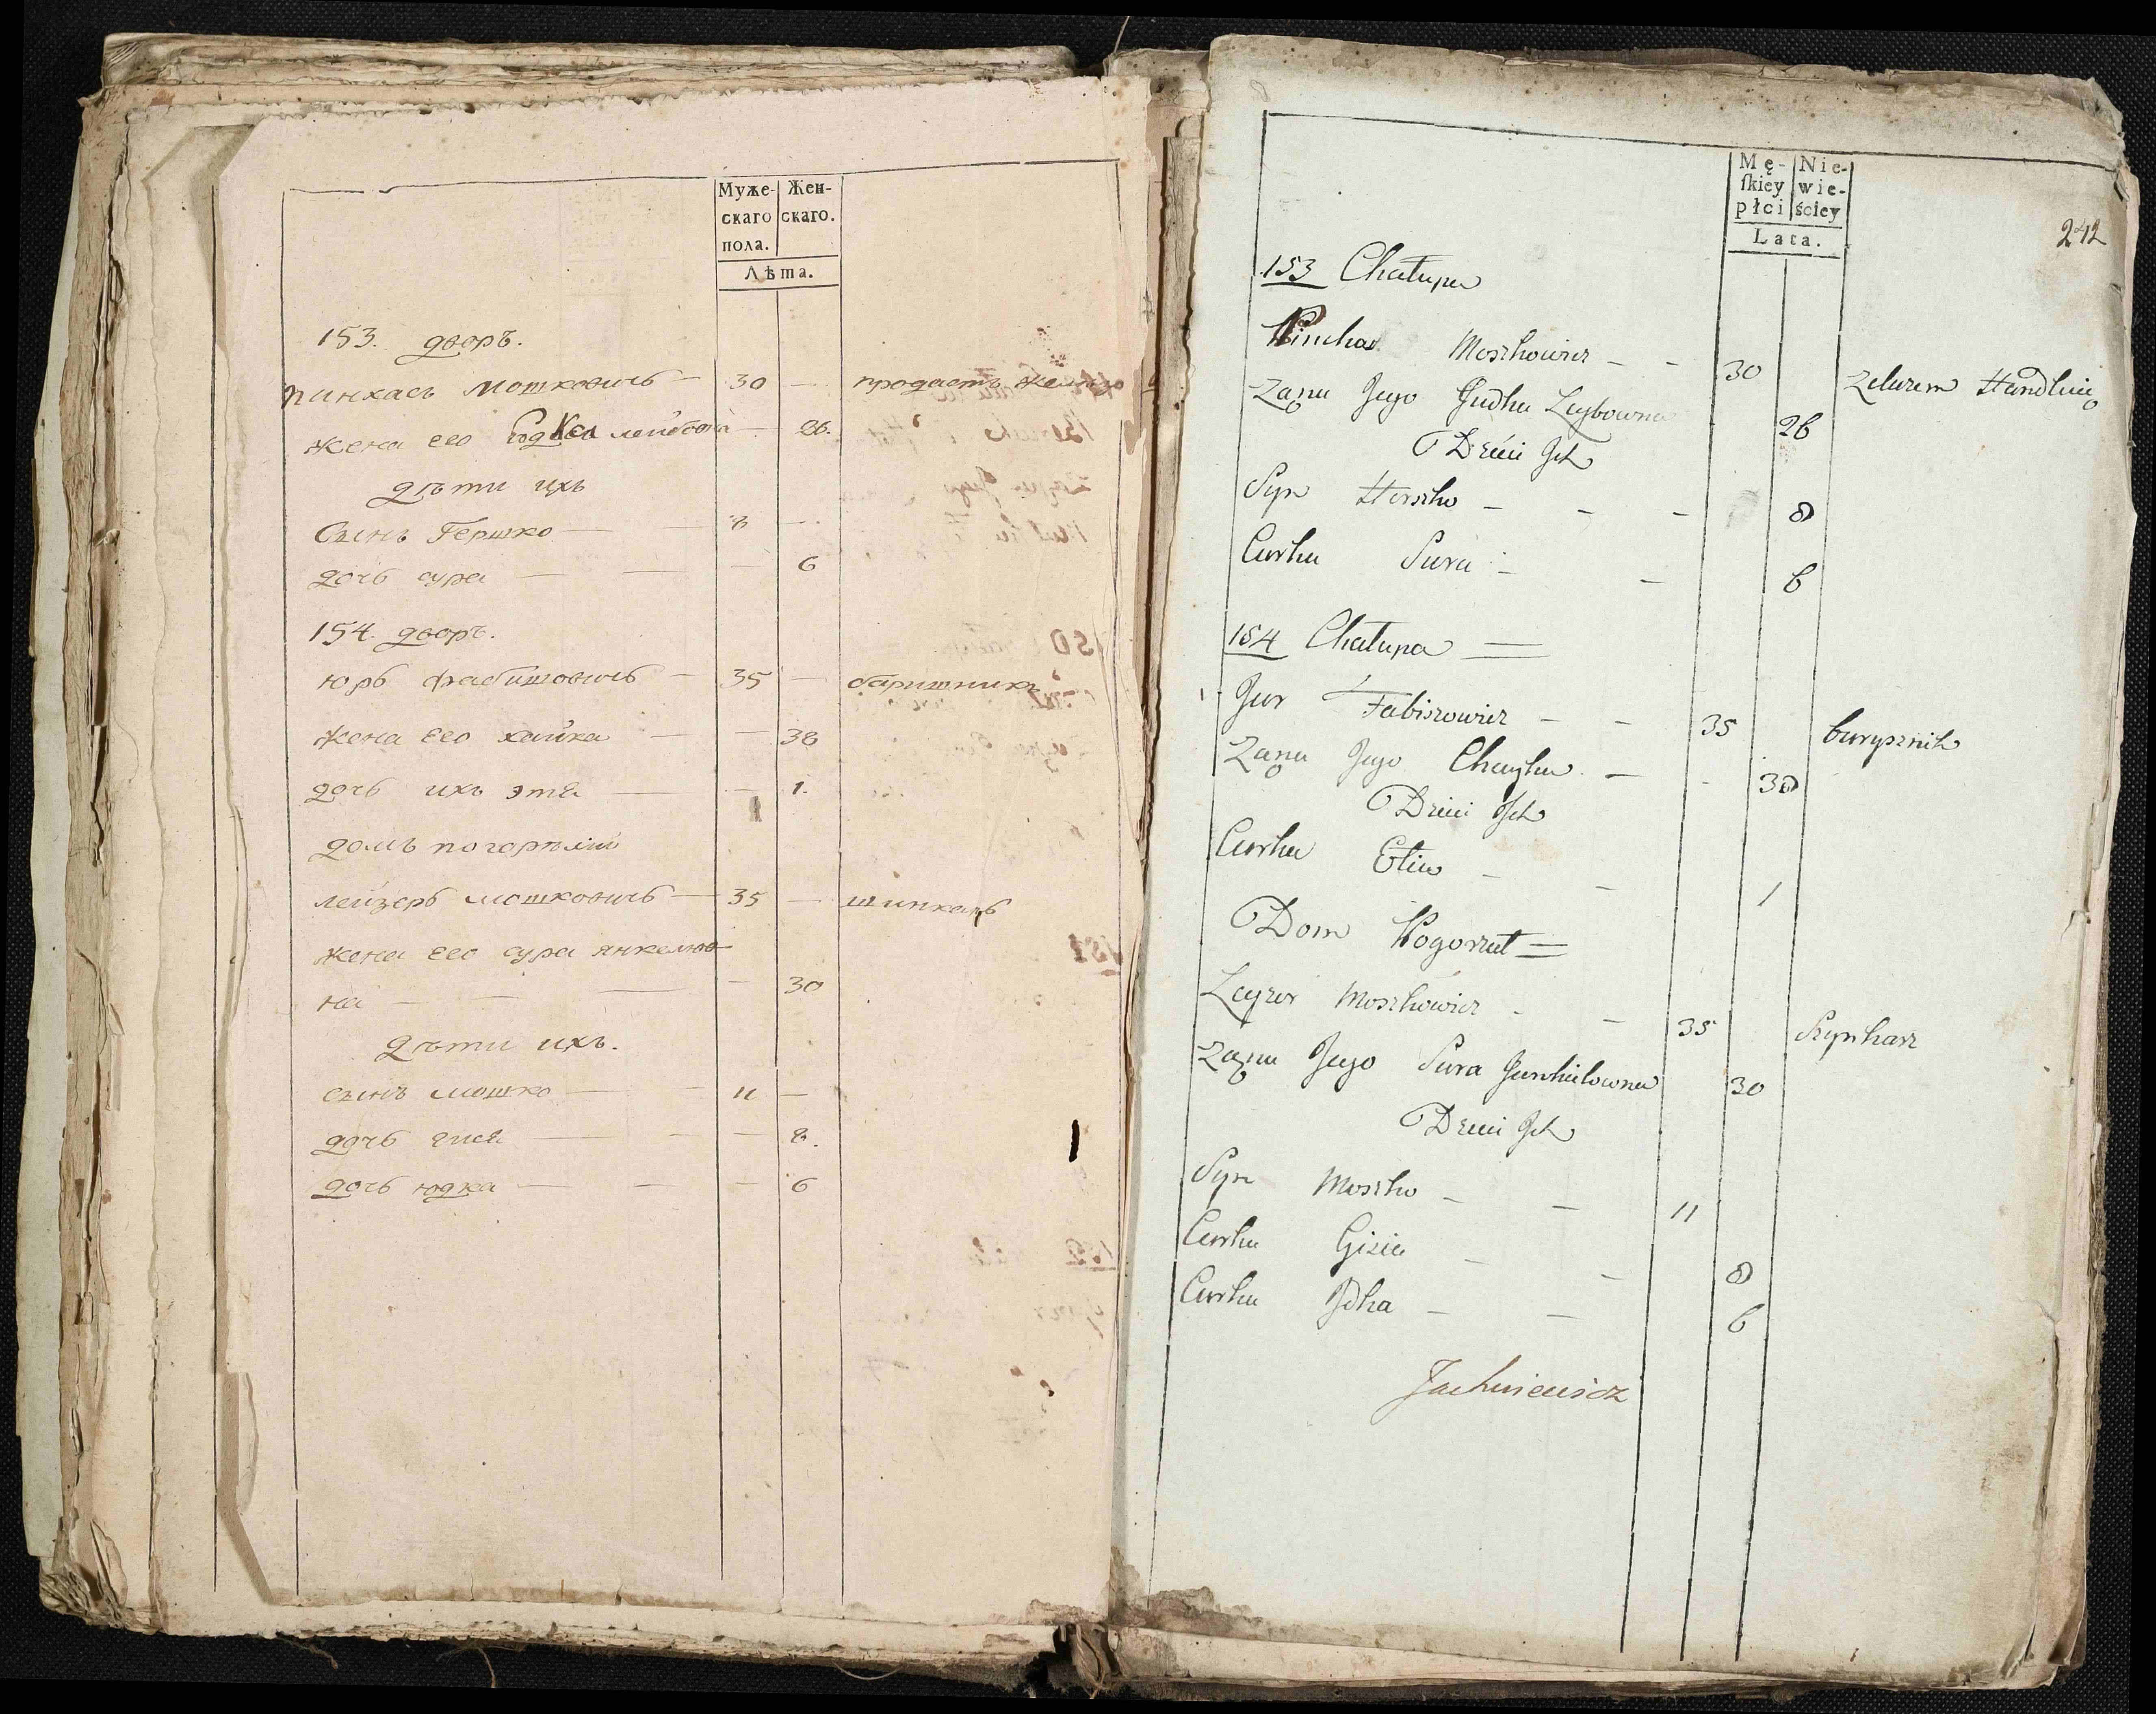 Муже- Жен-
скаго скаго.
пола.
Лѣта.
153. дворъ.
пинхасъ мошковичь — 30 — продаетъ желѣзо
жена его юдка лейбова — 26.
дѣти ихъ
сынъ Гершко — — 8 —
дочь сура — — — 6
154. дворъ.
юръ фабишовичь — 35 — баришникъ
жена его хайка — — 38
дочь ихъ этя — — 1.
домъ погорѣлій
лейзеръ мошковичь — 35 — шинкарь
жена его сура янкелюв-
на — — — — 30
дѣти ихъ.
сынъ мошко — — 11 —
дочь гися — — — 8.
дочь юдка — — — 6
Mę- Nie-
ſkiey wie-
płci ściey
Lata.
242
153 Chałupa
Pinchas Moszkowicz — — 30 Zelazem Handluię
Ząna Jego Judka Leybowna 26
Dzieci Ich
Syn Herszko — — — 8
Curka Sura — — 6
154 Chałupa =
Jur Fabiszowicz — — 35 barysznik
Ząna Jego Chayka — - 38
Dzieci Ich
Curka Etia — — 1
Dom Pogorzał =
Leyzer Moszkowicz - — 35 Szynkarz
Ząna Jego Sura Jankielowna 30
Dzieci Ich
Syn Moszko — — 11
Curka Gisia — — 8
Curka Idka — — 6
Jachniewicz